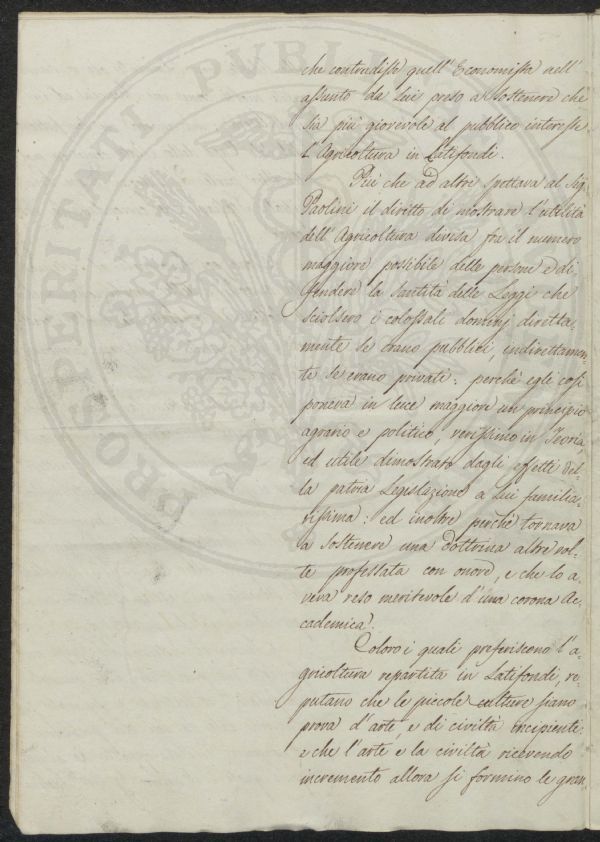 PROSPERITATI PVBLI
che contradisse quell'Economista nell'
assunto da Lui preso a sostenere che
sia più giovevole al pubblico interesse
l'Agricoltura in Latifondi.
Più che ad altri spettava al Sig.
Paolini il diritto di mostrare l'utilità
dell'Agricoltura divisa fra il numero
maggiore possibile delle persone e di
fendere la santità delle Leggi che
sciolsero i colossali dominj diretta,
mente se erano pubblici, indirettamen
te se erano privati: perchè egli così
poneva in luce maggiore un principio
agrario e politico, verissimo in Teoria,
ed utile dimostrato dagli effetti del-
la patria Legislazione a Lui familia-
rissima: ed inoltre perchè tornava
a sostenere una dottrina altre vol-
te professata con onore, e che lo a,
veva reso meritevole d'una corona Ac-
cademica.
Coloro i quali preferiscono l'a-
gricoltura repartita in Latifondi, re-
putano che le piccole culture siano
prova d'arte, e di civiltà incipiente:
e che l'arte e la civiltà ricevendo
incremento allora si formino le gran,